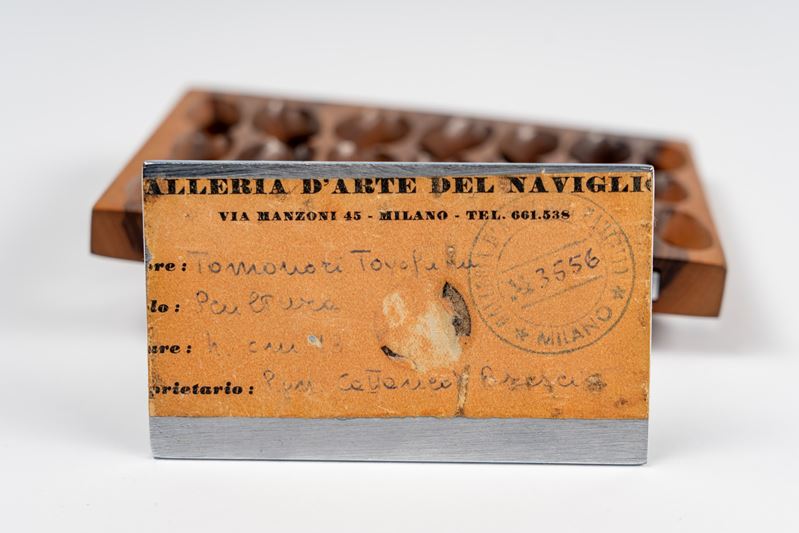 ALLERIA D'ARTE DEL NAVIGLI
VIA MANZONI 45 - MILANO - TEL. 661.538
re: Tomonori Toyofuku
lo: Scultura
ure: h. cm
prietario: Cattaneo Brescia
3556
MILANO